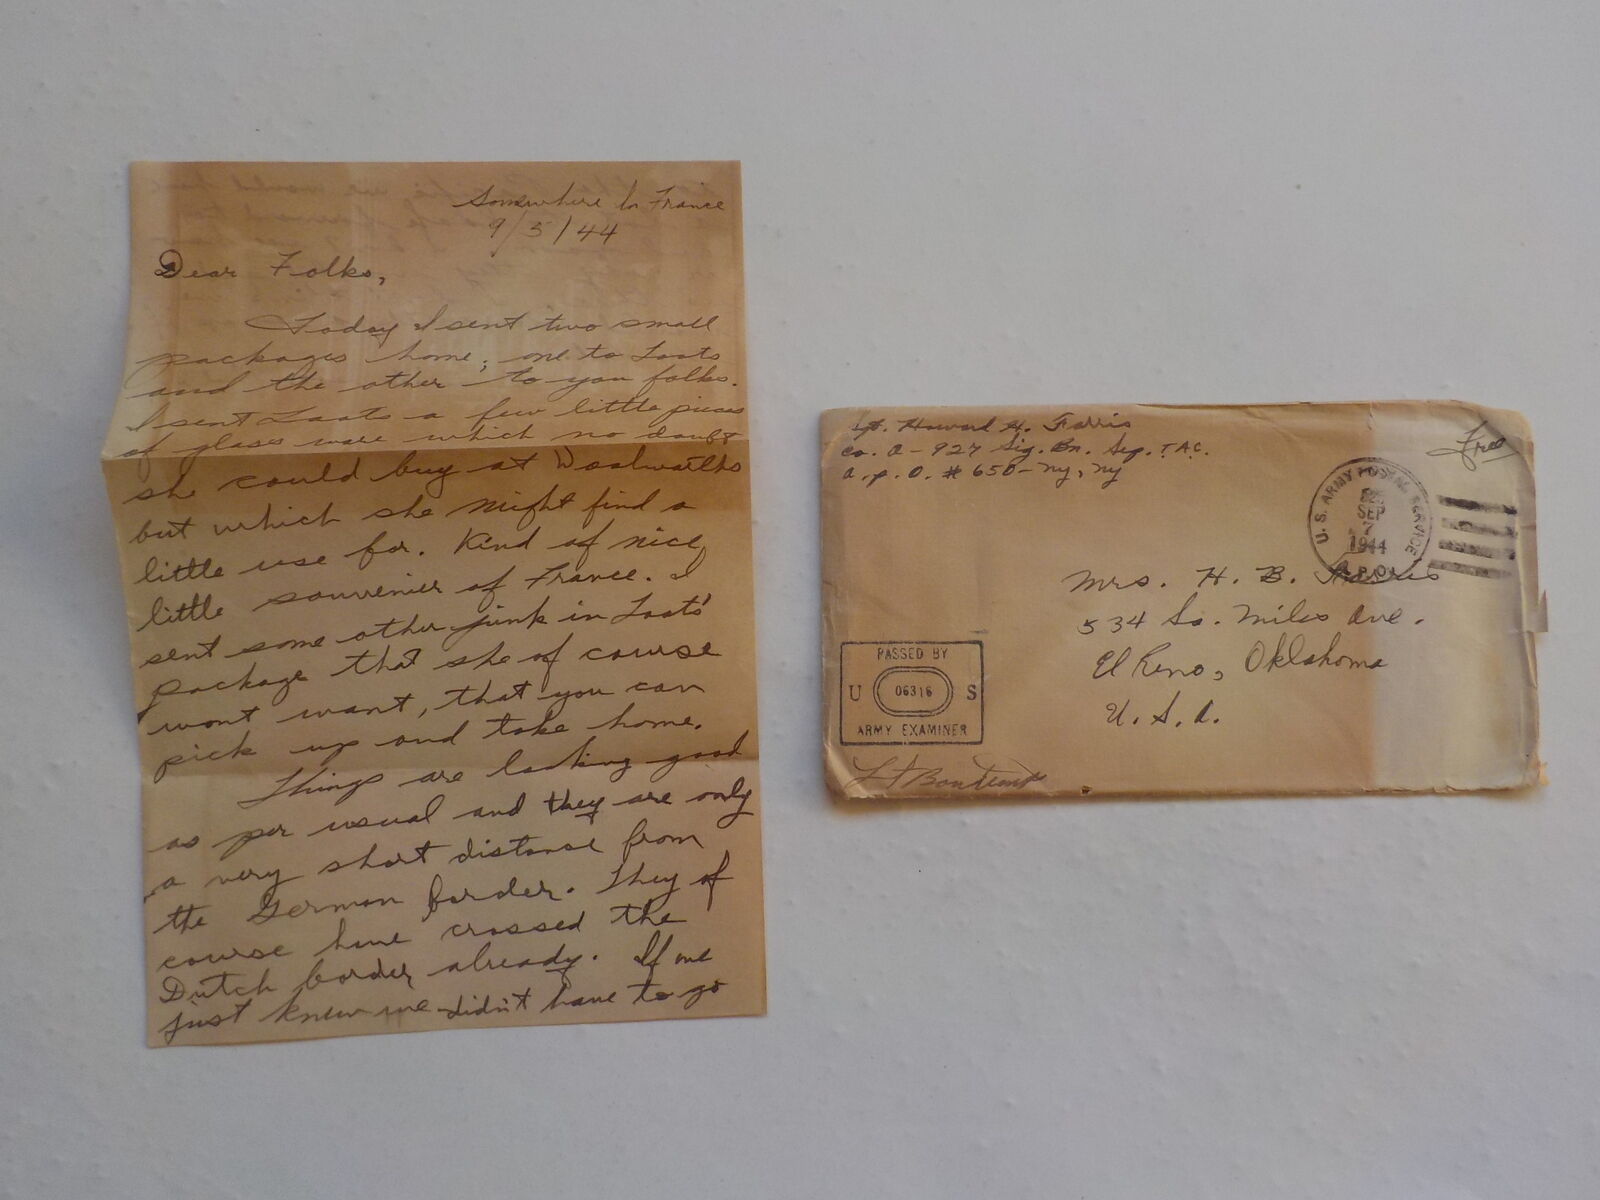 Somewhere In France
9/5/44
Dear Folks,
Today I sent two small
packages home; one to Toots
and the other to you folks.
I sent Toots a few little pieces
of glass ware which no doubt
she could buy at Woolworths
but which she might find a
little use for. Kind of nice
little souvenier of France. I
sent some other junk in Toots'
package that she of course
wont want, that you can
pick up and take home.
Things are looking good
as per usual and they are only
a very short distance from
the German border. They of
course have crossed the
Dutch border already. If we
just knew we didn't have to go
Sgt. Howard H. Farris
Co. A - 927 Sig. Bn. Sep. T.A.C.
A.P.O. # 650 - NY, NY
Free
U.S. ARMY POSTAL SERVICE
SEP
7
1944
A.P.O.
Mrs. H. B. Farris
534 So. Miles Ave.
El Reno, Oklahoma
U.S.A.
PASSED BY
U 06316 S
ARMY EXAMINER
Lt